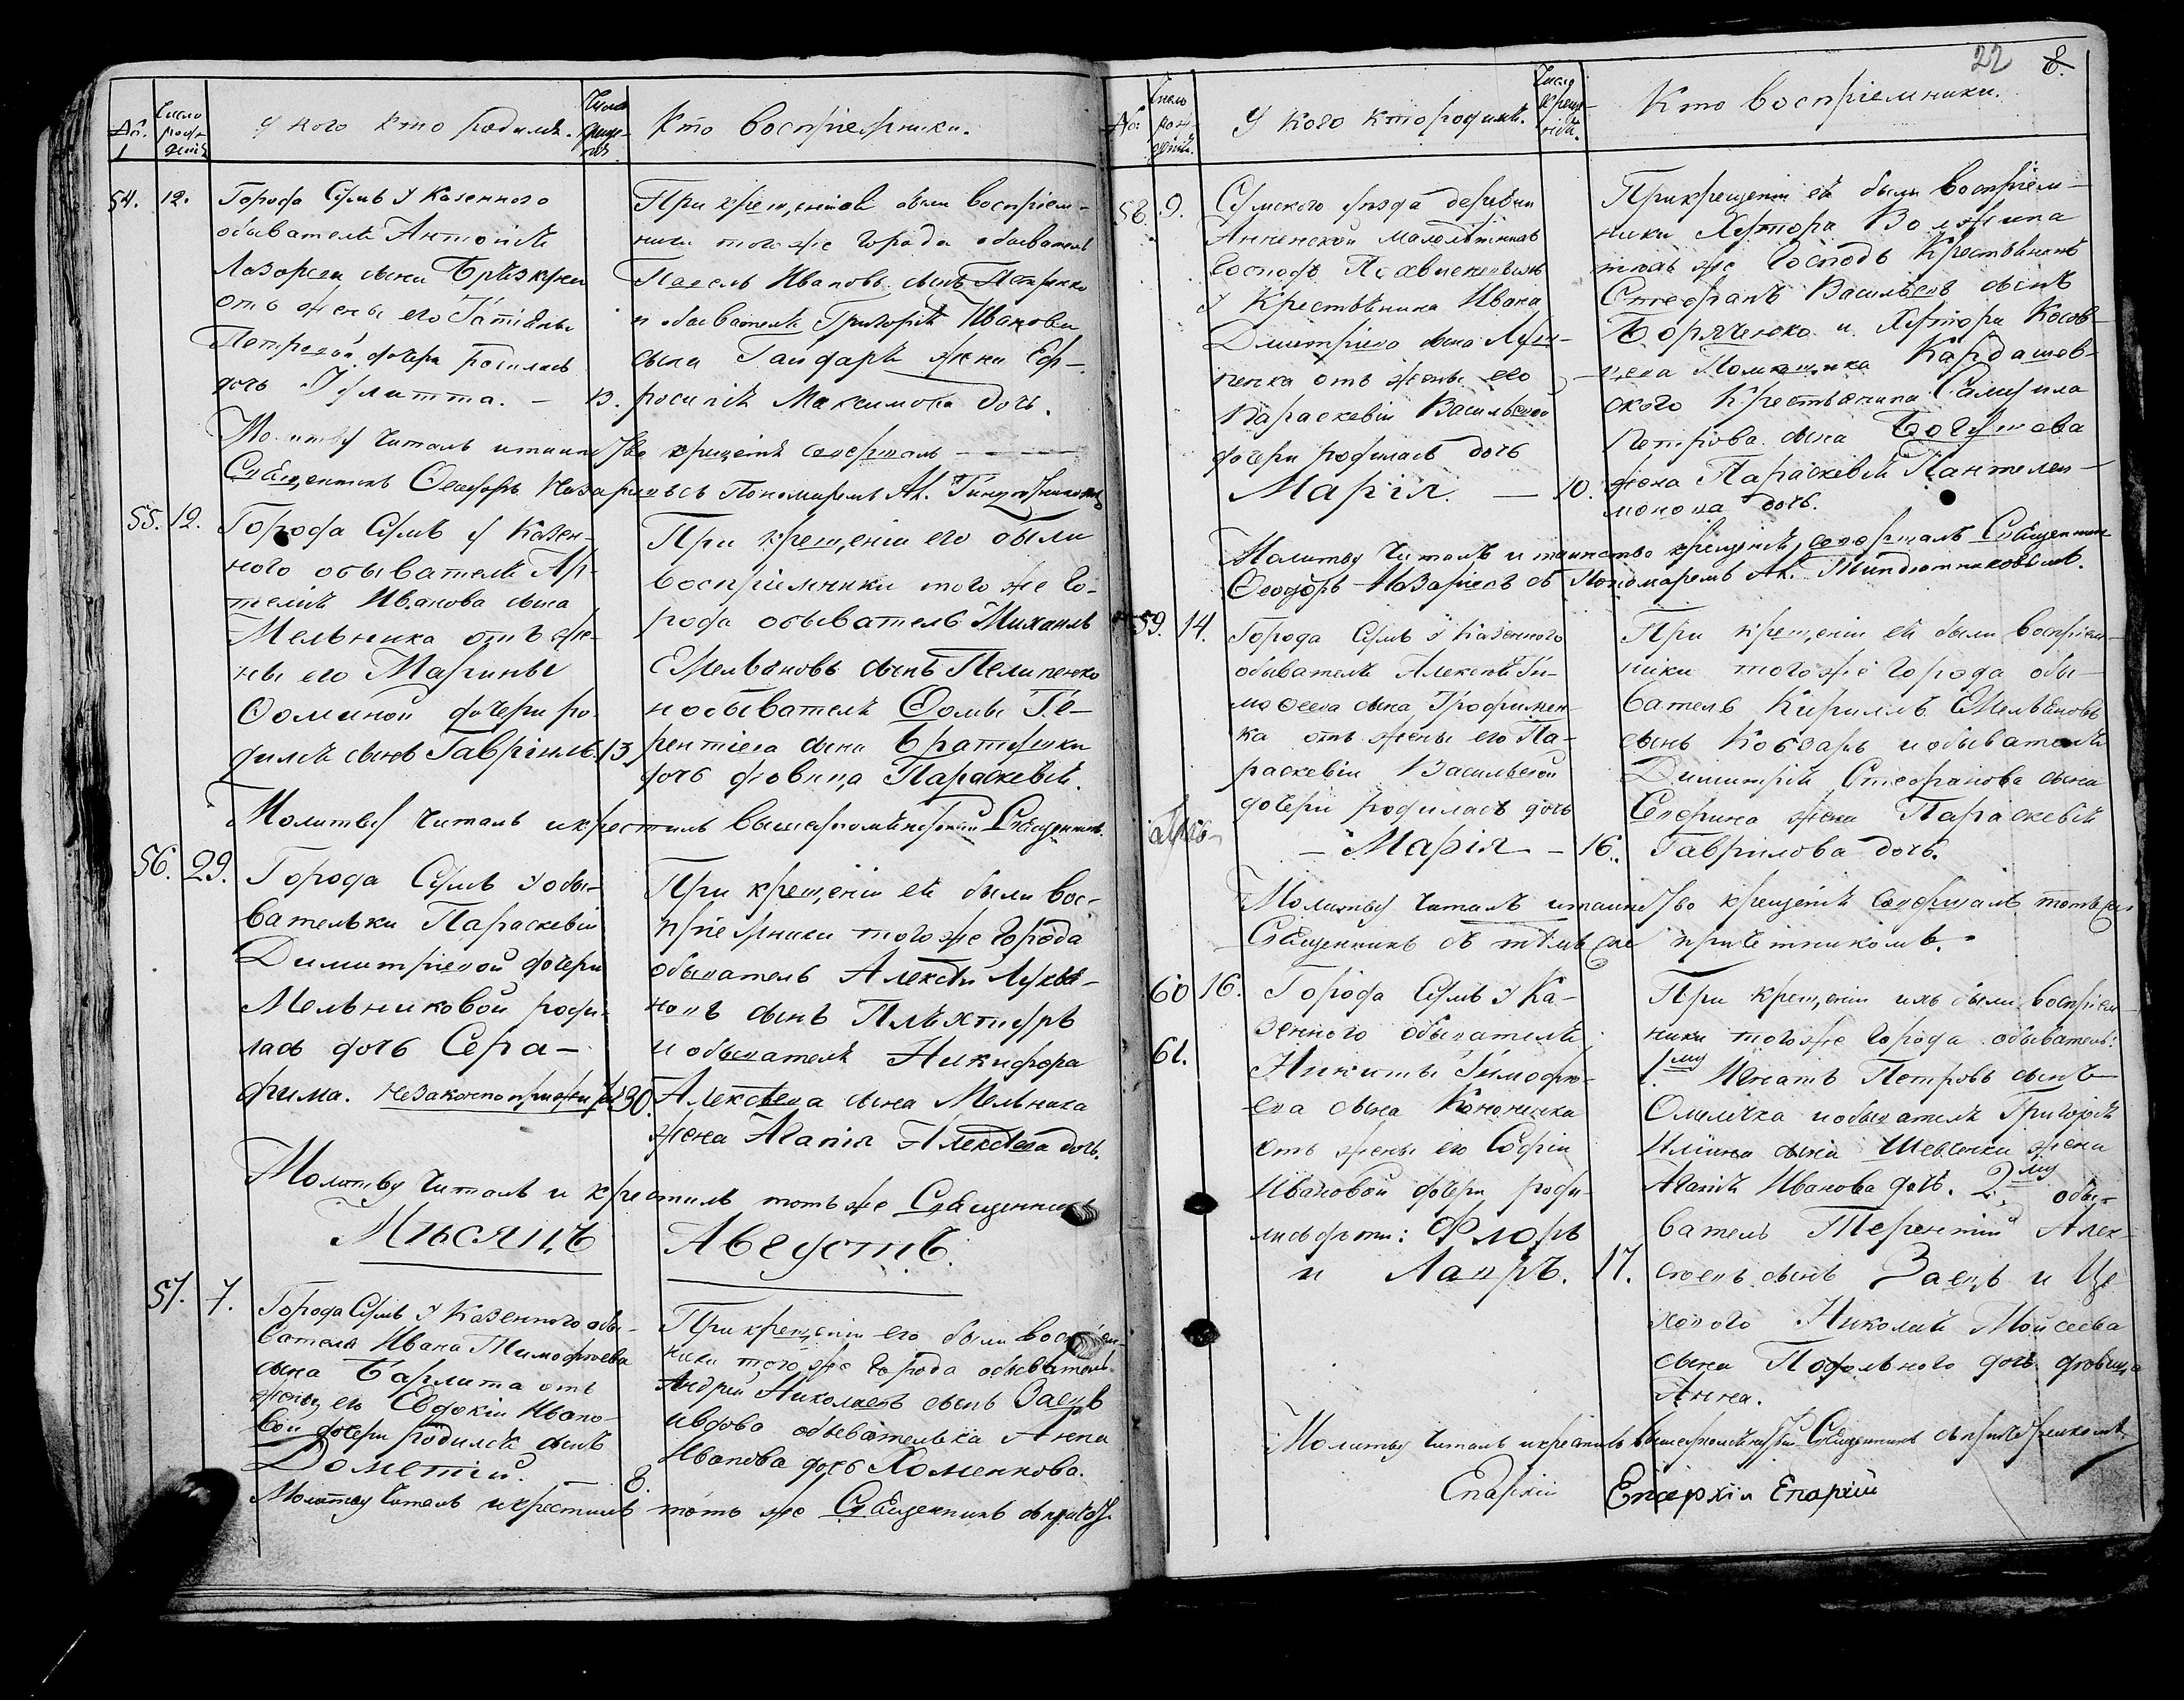 №.
Число рождения
У кого кто родился.
Число крещения
Кто восприемники.
54. 12.
Города Сумъ у Казенного
обывателя Антонія
Лазорева сына
отъ жены его Татіаны
Петровой дочери родилась
дочь Іулитта. — 13.
При крещеніи ея были восприем-
ники того же города обыватель
Павелъ Ивановъ сынъ Петренко
и обывателя Григорія Иванова
сына Гандаря жена Еф-
росинія Максимова дочь.
Молитву читалъ и таинство крещенія совершалъ
Священникъ Ѳеодоръ Назарьевъ съ Пономаремъ Ал.
55. 12.
Города Сумъ у Казен-
ного обывателя
Иванова сына
Мельника отъ же-
ны его Марины
Ѳоминой дочери ро-
дился сынъ Гавріилъ. 13.
При крещеніи его были
восприемники того же го-
рода обыватель Михаилъ
Емельяновъ сынъ Пелипенко
и обывателя Ѳомы Те-
рентіева сына Братушки
дочь девица Параскевія.
Молитву читалъ и крестилъ вышеупомянутый Священникъ.
56. 29.
Города Сумъ у обы-
вательки Параскевіи
Димитріевой дочери
Мельниковой роди-
лась дочь Сера-
фима. незаконноприжитая 30.
При крещеніи ея были вос-
приемники того же города
обыватель Алексѣй Лукья-
новъ сынъ
и обывателя Никифора
Алексѣева сына Мельника
жена Агапія Алексѣева дочь.
Молитву читалъ и крестилъ тотъ же Священникъ
Мѣсяцъ Августъ.
57. 7.
Города Сумъ у Казенного обы-
вателя Ивана Тимофѣева
сына Барлита отъ
жены его Евдокіи Ивано-
вой дочери родился сынъ
Дометій. — 8.
При крещеніи его были восприем-
ники того же города обыватель
Андрей Николаевъ сынъ Заецъ
и вдова обывателька Анна
Иванова дочь Хоменкова.
Молитву читалъ и крестилъ тотъ же Священникъ съ
22 8.
№.
Число рождения.
У кого кто родился.
Число крещения.
Кто восприемники.
58. 9.
Сумского уезда деревни
Анненской малолѣтнихъ
Господъ
у Крестьянина Ивана
Димитріева сына
отъ жены его
Параскевіи Васильевой
дочери родилась дочь
Марія. — 10.
При крещеніи ея были восприем-
ники Хутора
тѣхъ же Господъ Крестьянинъ
Стефанъ Васильевъ сынъ
Боряченко и Хутора Косов-
цева Помещика Кардашев-
ского Крестьянина Самуила
Петрова сына
жена Параскевія Пантелей-
монова дочь.
Молитву читалъ и таинство крещенія совершалъ Священникъ
Ѳеодоръ Назарьевъ съ Пономаремъ Ал.
59. 14.
Города Сумъ у Казенного
обывателя Алексѣя Ти-
моѳеева сына Трофимен-
ка отъ жены его Па-
раскевіи Васильевой
дочери родилась дочь
— Марія — 16.
При крещеніи ея были восприем-
ники того же города обы-
ватель Кириллъ Емельяновъ
сынъ Кобзарь и обывателя
Димитрія Стефанова сына
жена Параскевія
Гаврилова дочь.
Молитву читалъ и таинство крещенія совершалъ тотъ же
Священникъ съ тѣмъ же причетникомъ.
60 16.
61.
Города Сумъ у Ка-
зенного обывателя
Никиты Тимофѣ-
ева сына Кононенка
отъ жены его Софіи
Ивановой дочери роди-
лись дѣти: Флоръ
и Лавръ. 17.
При крещеніи ихъ были восприем-
ники того же города обыватель:
1.му Игнатъ Петровъ сынъ
Омеличка и обывателя Григорія
Ильина сына Шевченки жена
Агапія Иванова дочь. 2.му обы-
ватель Терентій Алек-
сѣевъ сынъ Заецъ и Це-
хового Николая Мойсеева
сына Подольного дочь девица
Анна.
Молитву читалъ и крестилъ вышеупомянутый Священникъ съ причетникомъ
Епархіи Епархія Епархіи